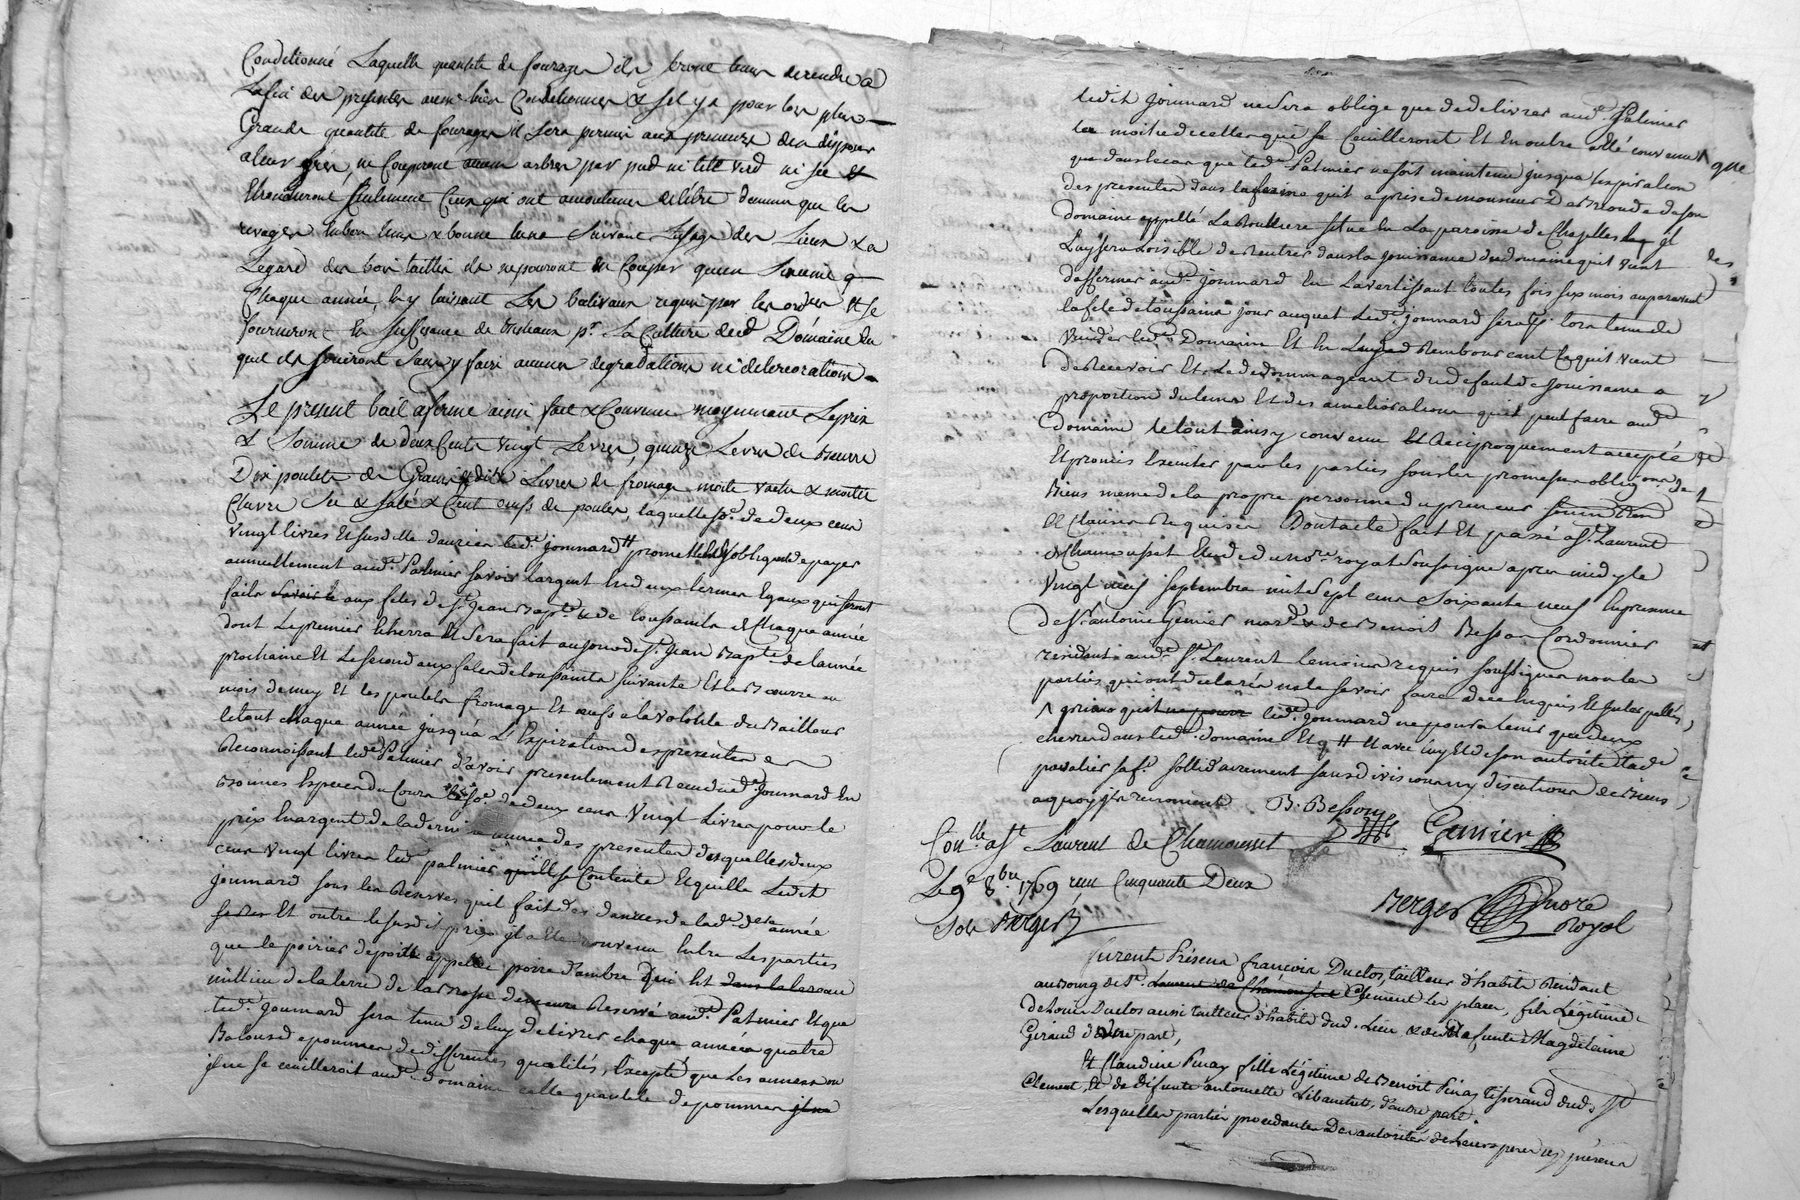 Conditionné Laquelle quantité de fourage ils seront tenus de rendre a
La fin des presentes aussi bien Conditionnés & sil y a pour lors plus
Grande quantité de fourages il sera permis aux preneurs den disposer
a leur gré, ne Couperont aucun arbre par pied ni tete verd ni séc et
Ebrancheront seulement Ceux qui ont accoutumé de lêtre de meme que les
en bon tems & bonne lune suivant Lusage des Lieux & a
Legard des bois taillis ils ne pouront en Couper qu'un
Chaque année, en y laissant Les balivaux requis par les ordces et se
fourniront en suffisance de pr. La Culture dud. Domaine du
quel ils jouiront sans y faire aucunes degradations ni deteriorations
Le present bail a ferme ainsi fait & Convenu moyennant Le prix
& somme de deux Cents vingt Livres, quinze Livres de beurre
Dix poulets de Grain et dix Livres de fromage moitié vache & moitié
Chevre sec & salé & Cent œufs de poules, laquelle so. de deux cens
vingt livres et susd. led. Joumard promet et s'oblige de payer
annuellement aud. Palmier savoir largent en deux termes Egaux qui seront
faits aux fetes de st. Jean Bapte. & de toussaints de Chaque année
dont Le premier Echerra et sera fait au jour de st. Jean Bapte. de lannée
prochaine et Le second aux fetes de toussaints suivante et le Beurre au
mois de may et les poulets fromage et œufs a la volonté du Bailleur
le tout chaque année jusqu'a L'Expiration des presentes
Reconnoissant led. Palmier d'avoir presentement Recu dud. Joumard en
bonnes Especes du Cours la so. de deux cens vingt Livres pour le
prix en argent de la derniere année des presentes desquelles deux
cens vingt livres led. palmier se Contente et quitte Ledit
Joumard sous les Reserves qu'il fait des danrees de lad. dere. année
et outre le susdit prix il a Ete convenu Entre Les parties
que le poirier de poire appellée poire d'ambre qui Est dans le
milieu de la terre de demeure Reservé aud. Palmier et que
led. Joumard sera tenu de luy delivrer chaque année quatre
de pommes de differentes qualités, Excepté que Les années ou
il ne se ceuilleroit aud. domaine cette quantité de pommes
ledit Joumard ne sera obligé que de delivrer aud. Palmier
la moitié de celles qui se Ceuilleront et en outre a été convenu que
que dans le cas que led. Palmier ne soit maintenu jusqua lexpiration
des presentes dans la ferme quil a prise de monsieur de son
domaine appellé La situé en La paroisse de Chazelles il
Luy sera Loisible de Rentrer dans la jouissance du domaine quil vient
daffermer aud. Joumard en Lavertissant toutes fois six mois auparavant
la fete de toussaints jour auquel Led. Joumard sera tenu de
vuider led. Domaine et en Luy Remboursant ce quil vient
de Recevoir et Le dedommageant du defaut de jouissance a
proportion du tems et des ameliorations quil peut faire aud.
domaine le tout ainsy convenu et Reciproquement accepté
et promis Executer par les parties sous les promesses obligons. de
Biens meme de la propre personne du preneur
& Clauses Requises Dont acte fait et passé a st. Laurent
de Chamousset Etude du nore. royal soussigné apres midy le
vingt neuf septembre mil sept cens soixante neuf En presence
de sr. antoine Genier mard. & de Benoit Besson Cordonnier
residants aud. st. Laurent temoins requis soussignés non les
parties qui ont declaré ne le savoir faire de ce Enquis et Interpellés,
led. Joumard ne poura tenir que deux
chevres dans led. domaine et avec luy et de son autorité
solidairement sans division ny discution de Biens
a quoy ils renoncent B. Besson
Genier
Conlle. a st Laurent de Chamousset
Le 9e 8bre 1769 reçu Cinquante Deux
sols Berger
Berger Nore
Royal
furent Présens françois Duclos, tailleur d'habits Résidant
au Bourg de St. Laurent de Chamousset Clement les places, fils Légitime
de Duclos aussi tailleur d'habits dud. Lieu & de defunte Magdelaine
Giraud d'une part,
Et Claudine Pinay fille Légitime de Benoit Pinay tisserand dud. St
Clement, Et de defunte antoinette d'autre part.
Lesquelles parties procedantes De autorités de leurs peres icy présens